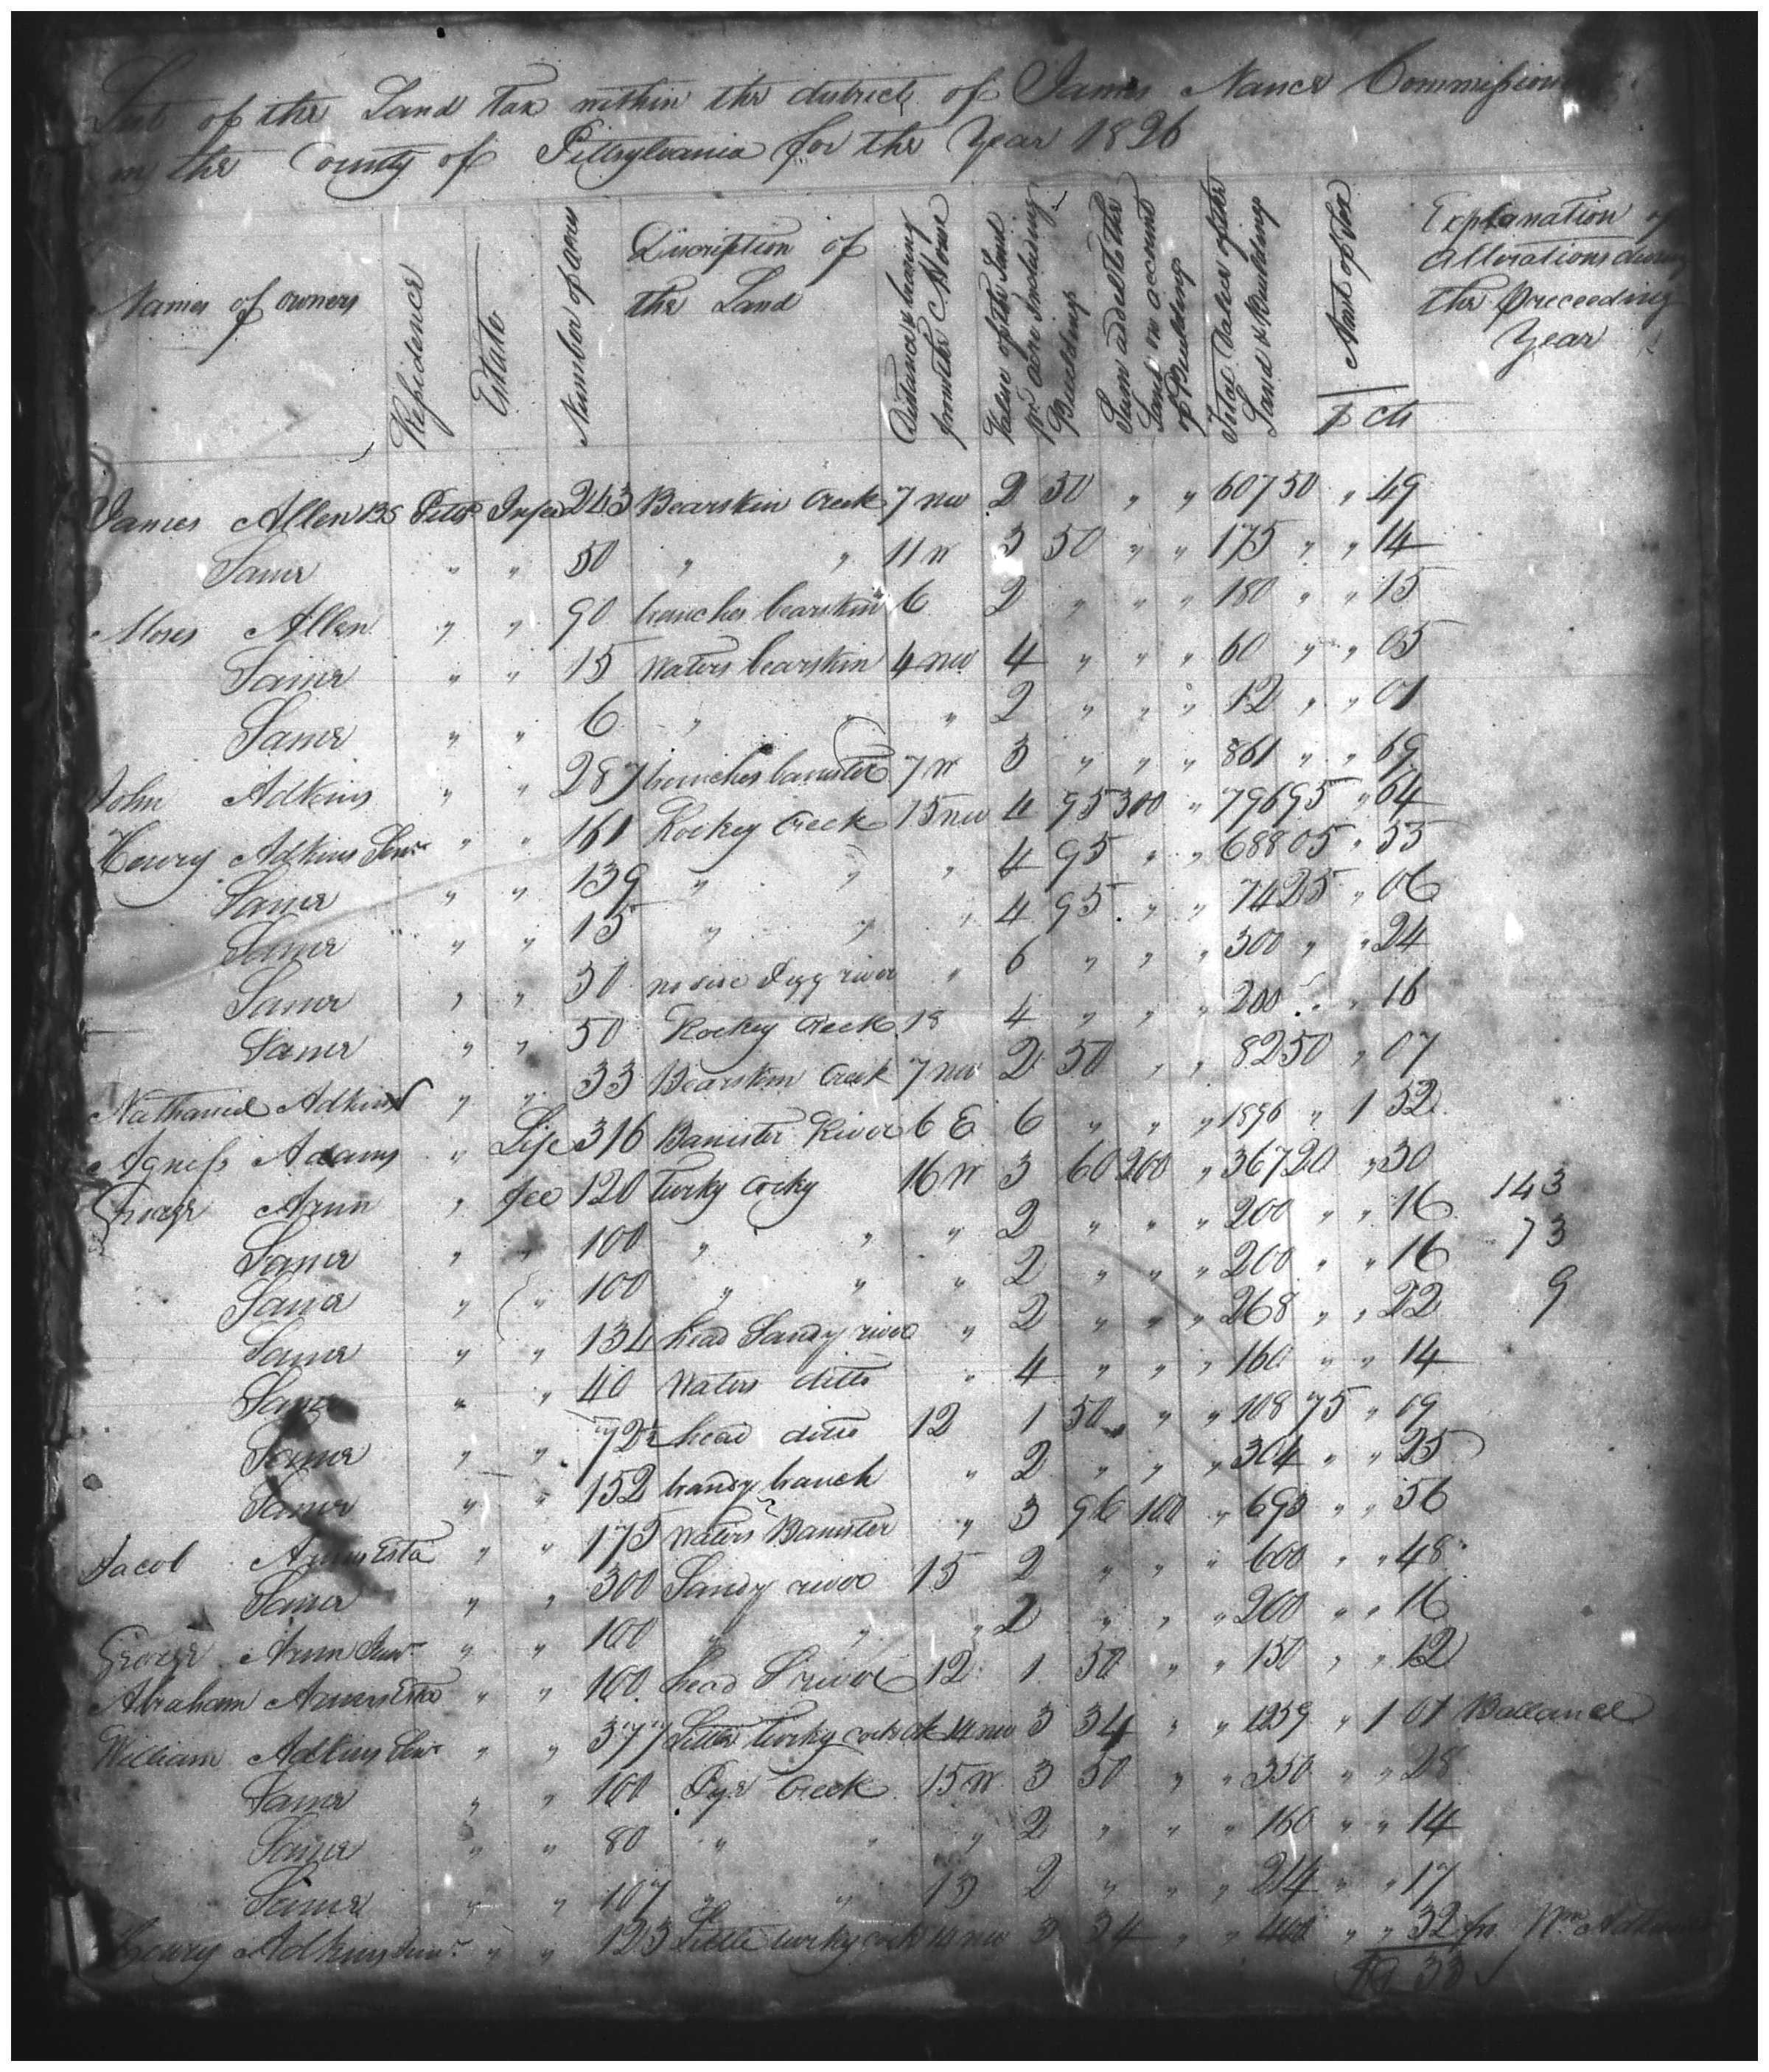 List of the Land Tax within the district of James Nance Commissioner
in the County of Pittsylvania for the Year 1826
Names of owners
Residence
Estate
Number of acres
Discription of
the Land
Distance & bearing
from the C. House
Value of the Land
pr. acre including
Buildings
Sum added to the
Land on account
of Buildings
Total Value of the
Land & Buildings
Amt of Tax
$ cts
Explanation of
Alterations during
the Preceeding
Year
James Allen Pitts 243 Bearskin Creek 7 nw 2 50 " " 607 50 " 49
Same " " 50 " " 11 W 3 50 " " 175 " " 14
Moses Allen " " 90 branches bearskin 6 2 " " " 180 " " 15
Same " " 15 Waters bearskin 4 nw 4 " " " 60 " " 05
Same " " 6 " " " 2 " " " 12 " " 01
John Adkins " " 287 branches banister 7 W 3 " " " 861 " " 69
Henry Adkins Senr " " 161 Rockey Creek 15 nw 4 95 300 " 796 95 " 64
Same " " 139 " " " 4 95 " " 688 05 " 55
Same " " 15 " " " 4 95 " " 74 25 " 06
Same " " 50 no side Pigg river " 6 " " " 300 " " 24
Same " " 50 Rockey Creek 18 4 " " " 200 " " 16
Nathaniel Adkins " " 33 Bearskin Creek 7 nw 2 50 " " 82 50 " 07
Agness Adams " Life 316 Banister River 6 E 6 " " " 1896 " 1 52
George Arnn " fee 120 Turky Cocky 16 W 3 60 200 " 367 20 " 30
Same " " 100 " " " 2 " " " 200 " " 16 143
Same " " 100 " " " 2 " " " 200 " " 16 73
Same " " 134 head Sandy river " 2 " " " 268 " " 22 9
Same " " 40 Waters ditto " 4 " " " 160 " " 14
Same " " 72½ head ditto 12 1 50 " " 108 75 " 09
Same " " 152 branch " 2 " " " 304 " " 25
Jacob Arnn Esta " " 175 Waters Banister " 3 96 100 " 693 " " 56
Same " " 300 Sandy river 15 2 " " " 600 " " 48
George Arnn Junr " " 100 " " " 2 " " " 200 " " 16
Abraham Arnn Esta " " 100 head S river 12 1 50 " " 150 " " 12
William Adkins Senr " " 377 Little turky cock ck 14 nw 3 34 " " 1259 " 1 01 Ballance
Same " " 100 Pyr Creek 15 W 3 50 " " 350 " " 28
Same " " 80 " " " 2 " " " 160 " " 14
Same " " 107 " " 13 2 " " " 214 " " 17
Henry Adkins Junr " " 123 Little turky cock 14 nw 3 34 " " 400 " " 32 fr Wm Adkins
$9 33